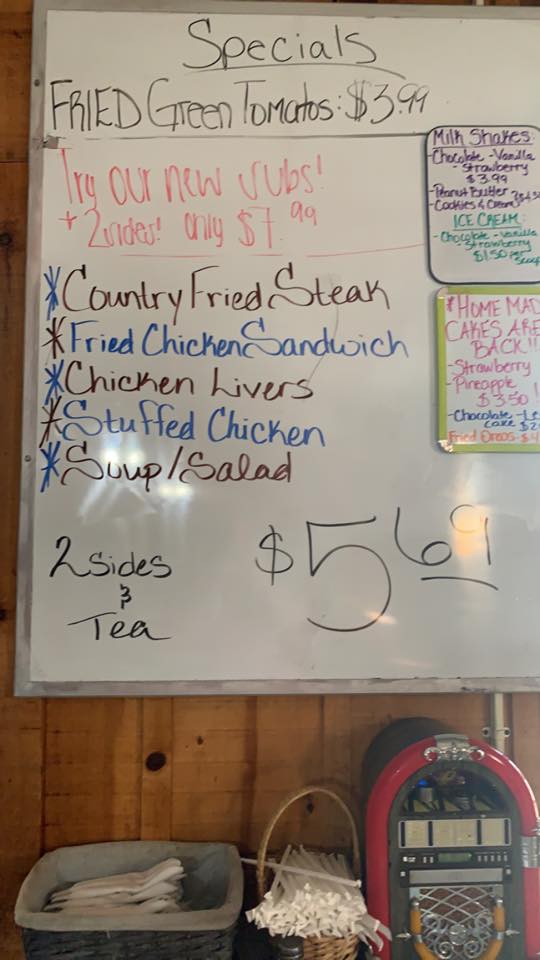 Specials
FRIED Green Tomatos: $3.99
Try our new subs!
+ 2 sides! only $7.99
*Country Fried Steak
*Fried Chicken Sandwich
*Chicken Livers
*Stuffed Chicken
*Soup/Salad
2 sides
&
Tea
$5.69
Milk Shakes:
-Chocolate -Vanilla
-Strawberry
$3.99
-Peanut Butter
-Cookies & Cream
ICE CREAM:
-Chocolate -Vanilla
-Strawberry
$1.50 per
Scoop
*HOME MAD
CAKES ARE
BACK!!
-Strawberry
-Pineapple
$3.50!
-Chocolate -Le
cake $2
Fried Oreos-$4